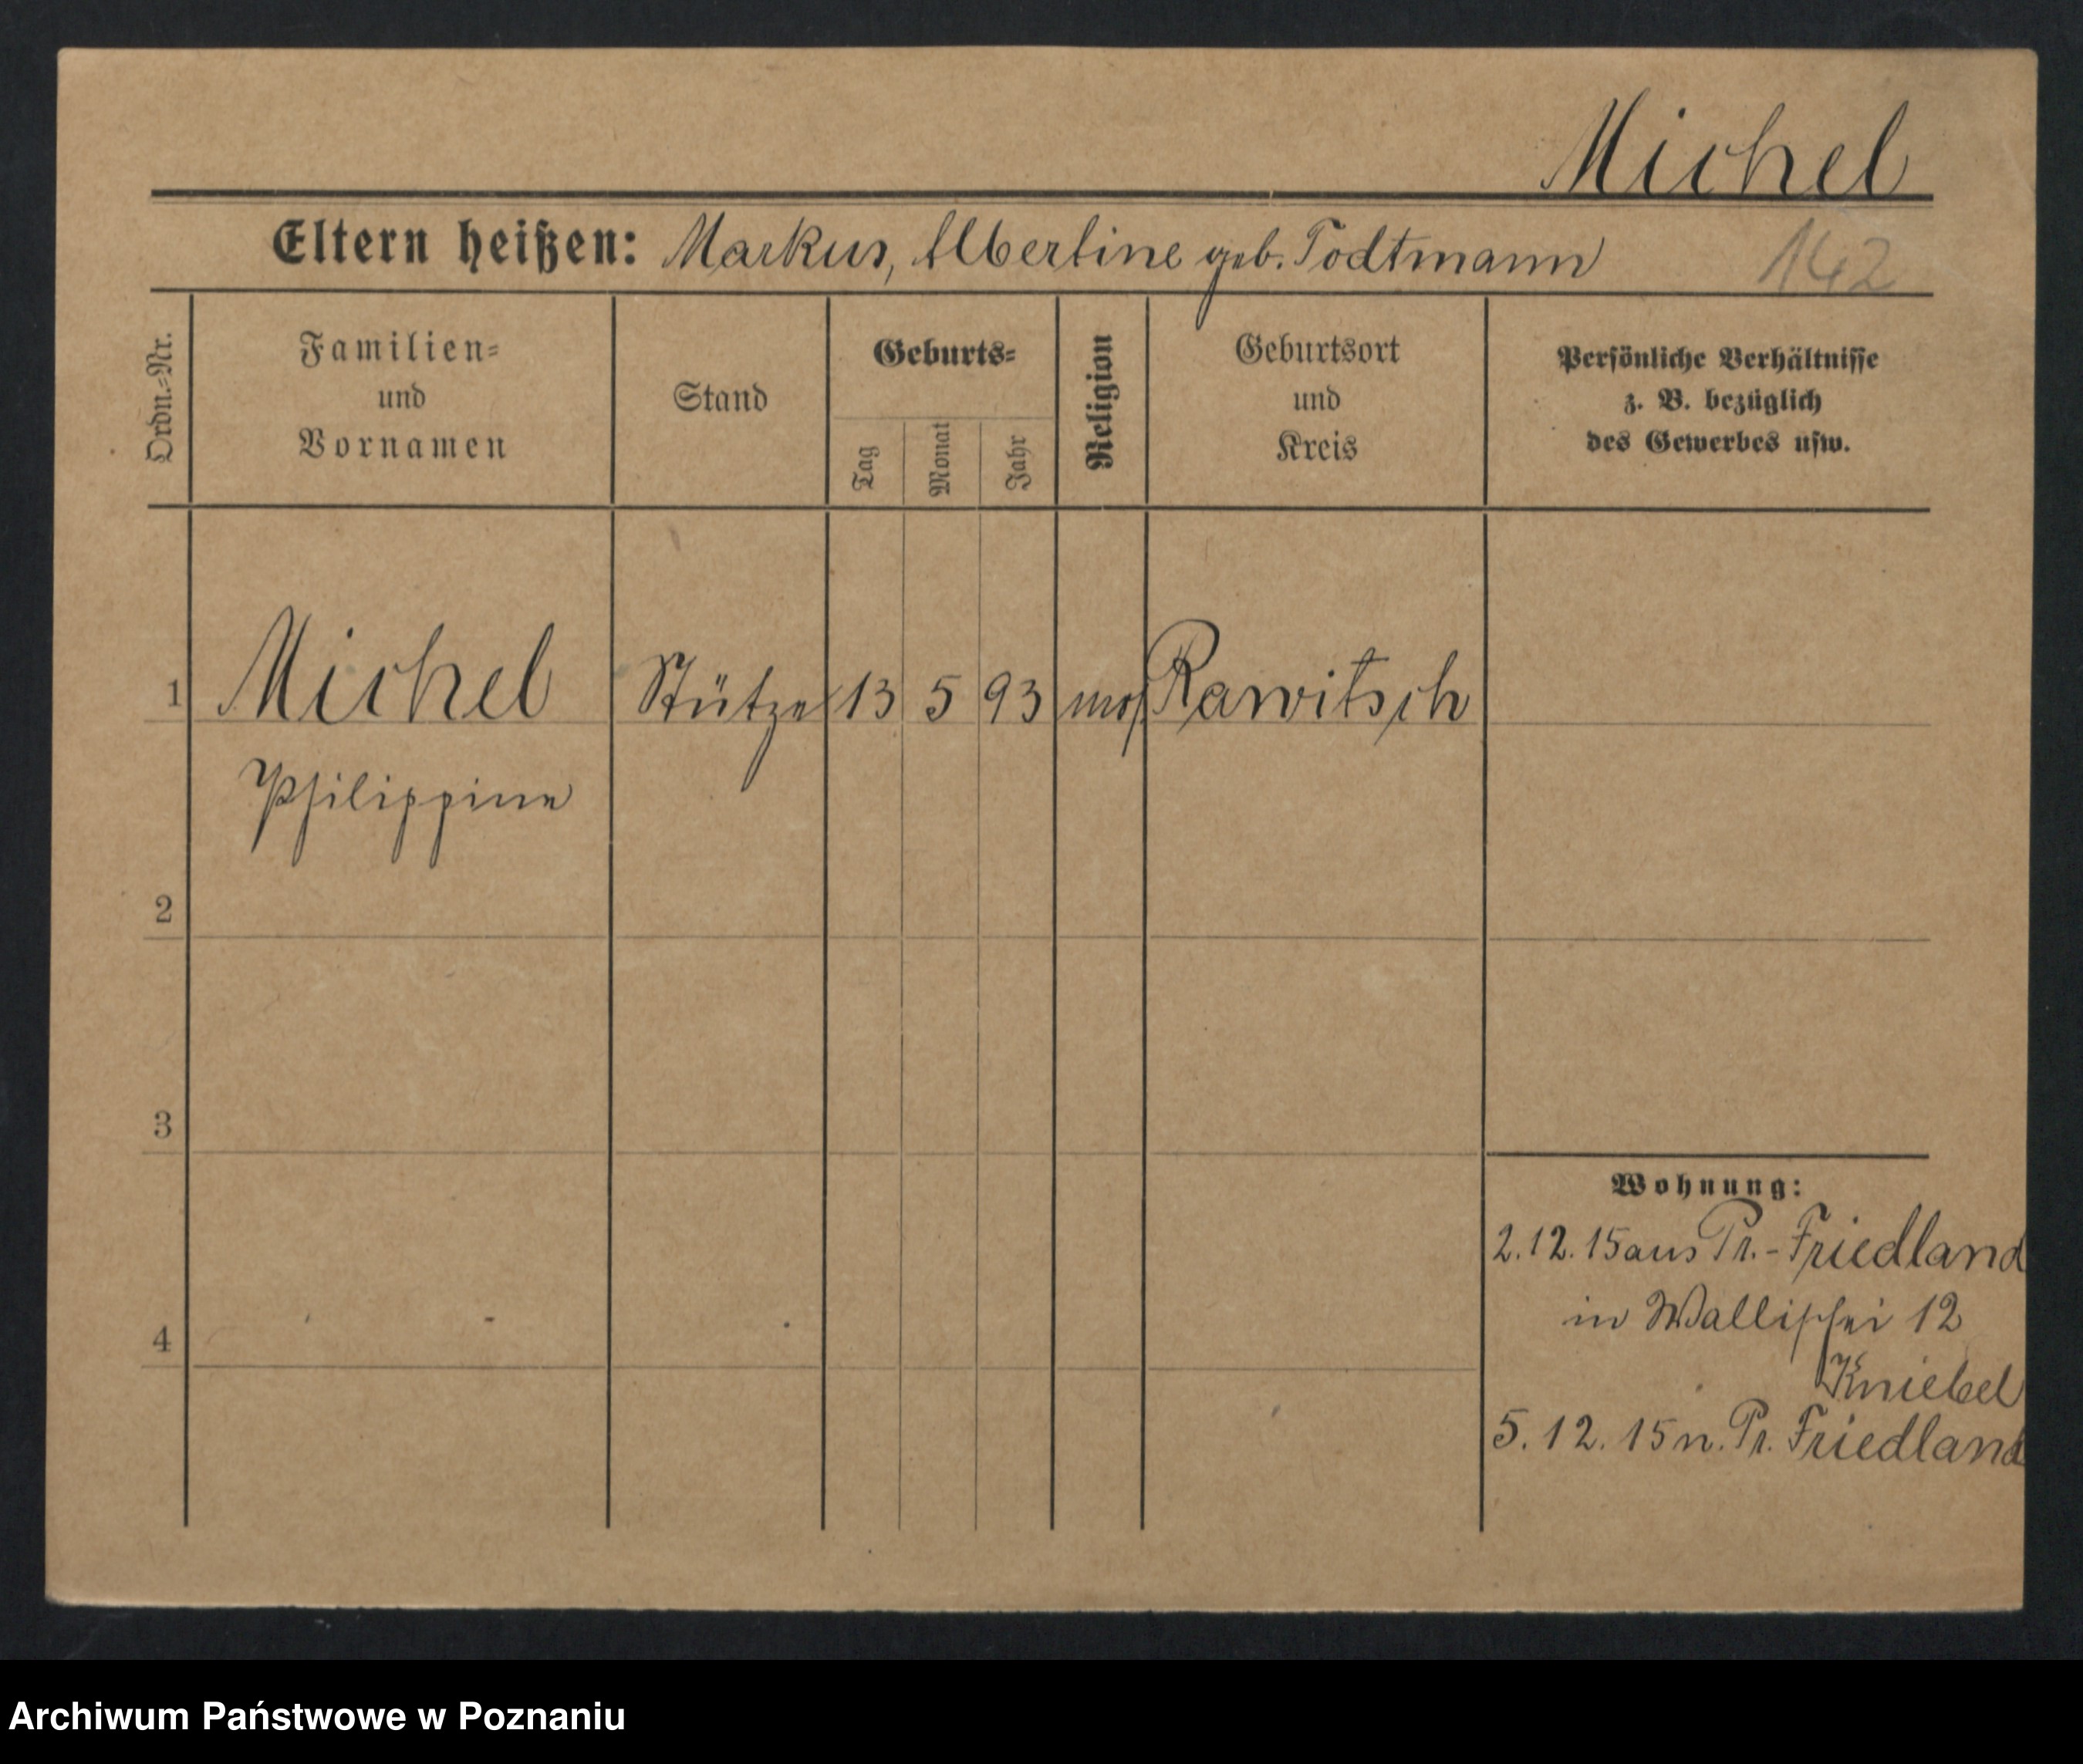 Michel
Eltern heißen: Markus, Albertine geb. Todtmann 142
Ordn.-Nr.
Familien-
und
Vornamen
Stand
Geburts-
Tag
Monat
Jahr
Religion
Geburtsort
und
Kreis
Persönliche Verhältnisse
z. B. bezüglich
des Gewerbes usw.
1 Michel Stütze 13 5 93 mos Rawitsch
Philippine
2
3
Wohnung:
2.12.15 aus Pr.-Friedland
in Wallischei 12
4
Kniebel
5.12.15 n. Pr. Friedland
Archiwum Państwowe w Poznaniu